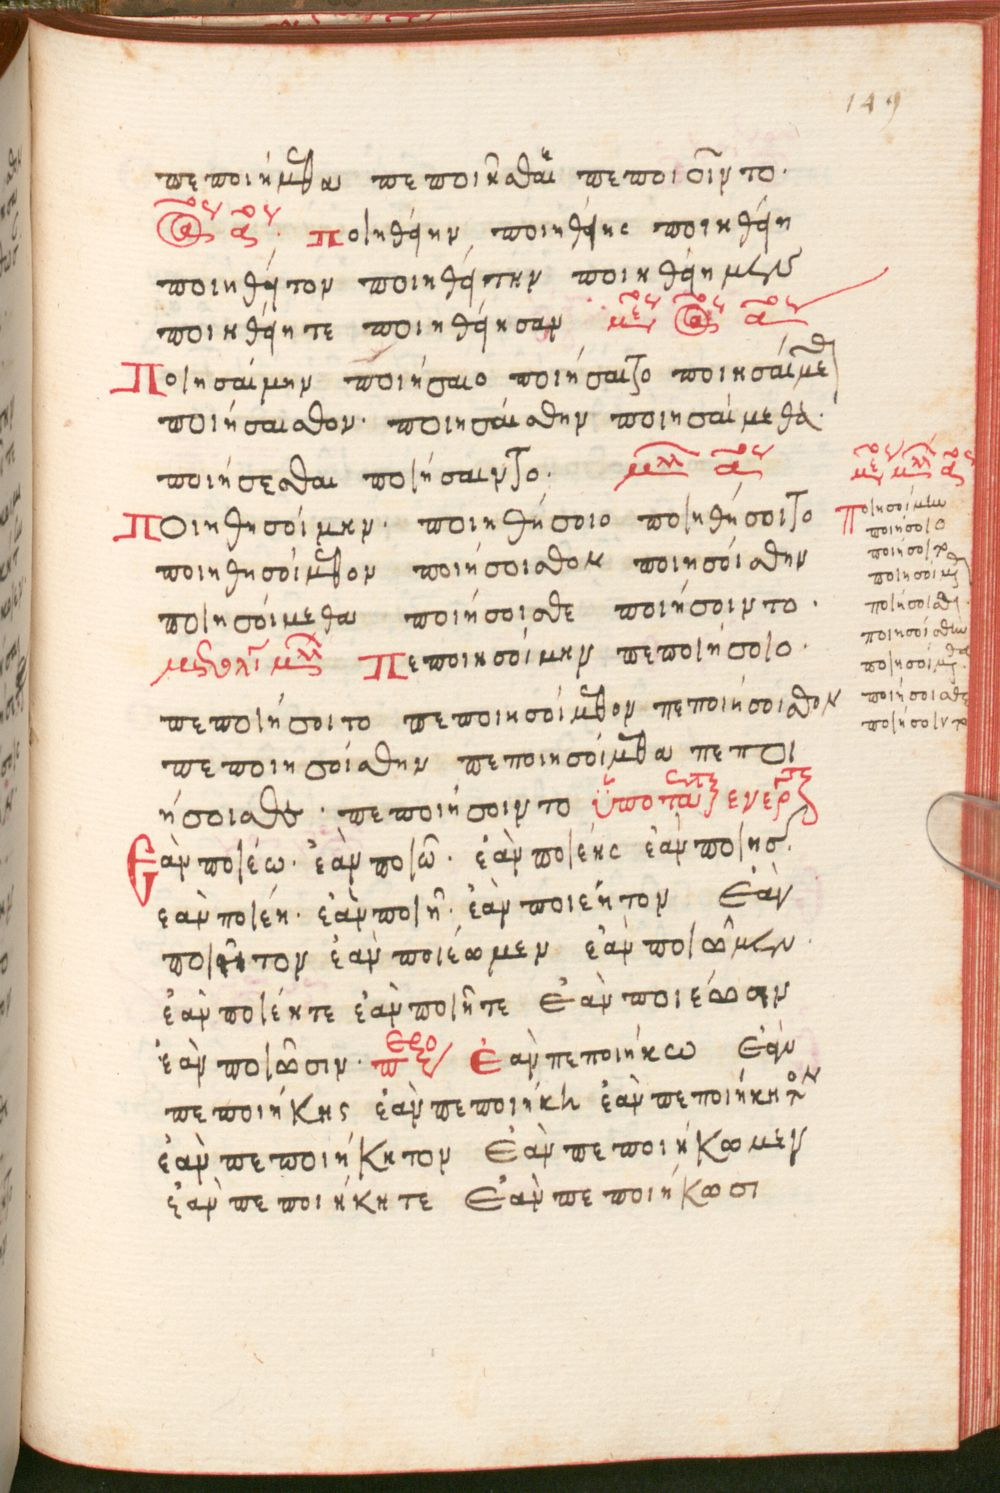 149
πεποιήμεθα πεποίησθαι πεποιοῖντο.
Ποιηθείην ποιηθείης ποιηθείη
ποιηθείτον ποιηθείτην ποιηθείημεν
ποιηθείητε ποιηθείησαν
Ποιησαίμην ποιήσαιο ποιήσαιτο ποιησαίμεθον
ποιήσαισθον. ποιησαίσθην ποιησαίμεθα.
ποιήσεσθαι ποιήσαιντο.
Ποιηθησοίμην. ποιηθήσοιο ποιηθήσοιτο
ποιηθησοίμεθον ποιήσοισθον ποιήσοίσθην
ποιησοίμεθα ποιήσοισθε ποιήσοιντο.
Πεποιησοίμην πεποιήσοιο.
πεποιήσοιτο πεποιησοίμεθον πεποιήσοισθον
πεποιησοίσθην πεποιησοίμεθα πεποι
ήσοισθε. πεποιήσοιντο
Ἐὰν ποιέω. ἐὰν ποιῶ. ἐὰν ποιέης ἐὰν ποιῇς.
ἐὰν ποιέη. ἐὰν ποιῇ. ἐὰν ποιέητον Ἐὰν
ποιῆτον ἐὰν ποιέωμεν ἐὰν ποιῶμεν.
ἐὰν ποιέητε ἐὰν ποιῆτε Ἐὰν ποιέωσιν
ἐὰν ποιῶσιν. Ἐὰν πεποιήκω Ἐὰν
πεποιήκης ἐὰν πεποιήκη ἐὰν πεποιήκητον
ἐὰν πεποιήκητον Ἐὰν πεποιήκωμεν
ἐὰν πεποιήκητε Ἐὰν πεποιήκωσι
ποιησοίμην
ποιήσοιο
ποιήσοιτο
ποιησοίμεθον
ποιήσοισθον
ποιησοίσθην
ποιησοίμεθα
ποιήσοισθε
ποιήσοιντο